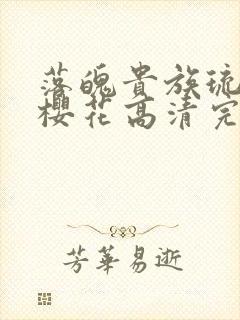 落魄贵族琉
樱花高清完
芳華易逝